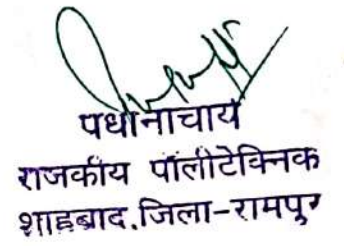 पधानाचार्य
राजकीय पॉलीटेक्निक
शाहबाद.जिला-रामपुर